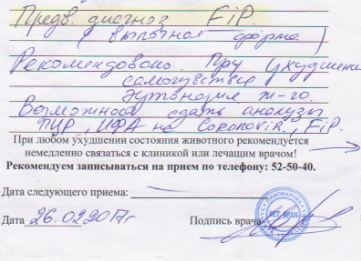 Предв. диагноз FiP.
(выпотная форма)
Рекомендовано. При ухудшении
самочувствия
Эутаназия ж-го.
Возможность сдать анализы
ПЦР, ИФА на Coronovir., FiP.
При любом ухудшении состояния животного рекомендуется
немедленно связаться с клиникой или лечащим врачом!
Рекомендуем записываться на прием по телефону: 52-50-40.
Дата следующего приема:
Дата 26.02.2017г Подпись врача